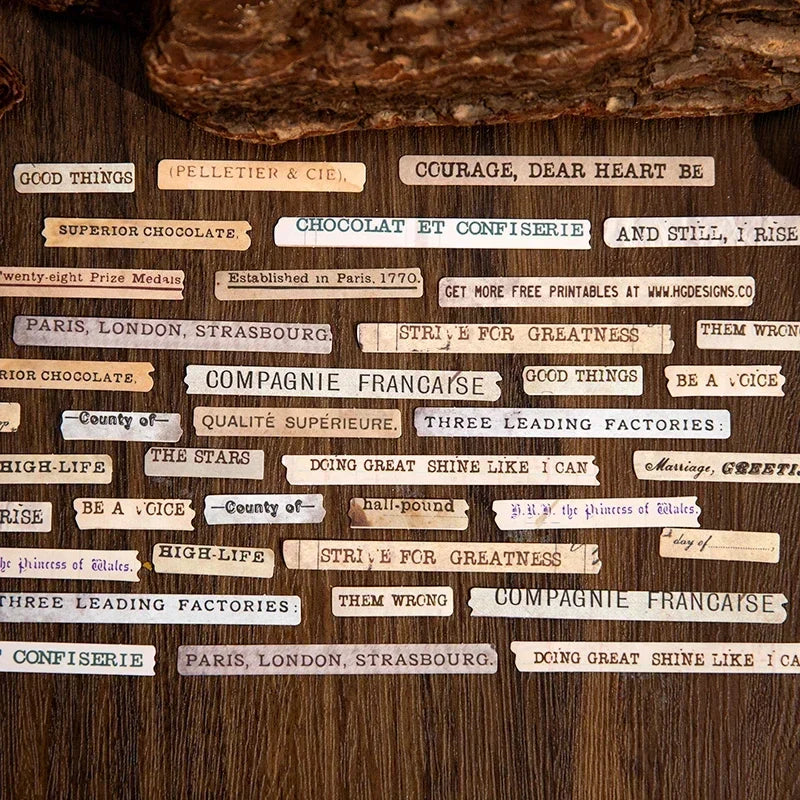 GOOD THINGS
(PELLETIER & CIE),
COURAGE, DEAR HEART BE
SUPERIOR CHOCOLATE,
CHOCOLAT ET CONFISERIE
AND STILL, I RISE
Twenty-eight Prize Medals
Established in Paris, 1770.
GET MORE FREE PRINTABLES AT WWW.HGDESIGNS.CO
PARIS, LONDON, STRASBOURG.
STRIVE FOR GREATNESS
THEM WRON
RIOR CHOCOLATE,
COMPAGNIE FRANCAISE
GOOD THINGS
BE A VOICE
County of
QUALITÉ SUPÉRIEURE.
THREE LEADING FACTORIES:
HIGH-LIFE
THE STARS
DOING GREAT SHINE LIKE I CAN
Marriage, GREETI
RISE
BE A VOICE
County of
half-pound
H.R.H. the Princess of Wales.
he Princess of Wales.
HIGH-LIFE
STRIVE FOR GREATNESS
day of
THREE LEADING FACTORIES:
THEM WRONG
COMPAGNIE FRANCAISE
T CONFISERIE
PARIS, LONDON, STRASBOURG.
DOING GREAT SHINE LIKE I CA